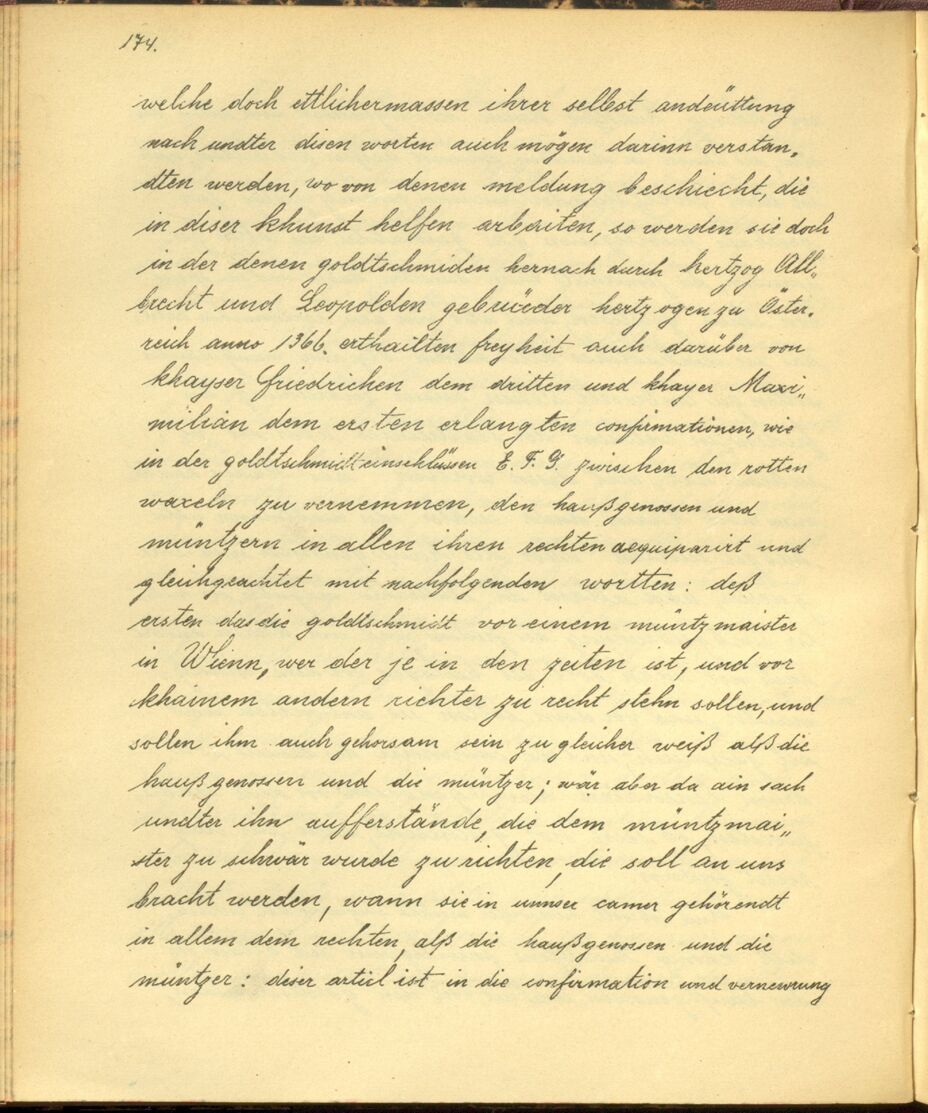 174.
welche doch ettlichermassen ihrer selbst andeüttung
nach undter disen worten auch mögen darinn verstan„
dten werden, wo von denen meldung beschiecht, die
in diser khunst helfen arbeiten, so werden sie doch
in der denen goldtschmiden hernach durch hertzog All„
brecht und Leopolden gebrüeder hertzogen zu Öster„
reich anno 1366. erthailten freyheit auch darüber von
khayser Friedrichen dem dritten und khayer Maxi„
milian dem ersten erlangten confirmationen, wie
in der goldtschmidt einschlüssen E. F. G. zwischen den rotten
waxeln zu vernemmen, den haußgenossen und
müntzern in allen ihren rechten aequiparirt und
gleichgeachtet mit nachfolgenden wortten: deß
ersten das die goldtschmidt vor einem müntzmaister
in Wienn, wer der je in den zeiten ist, und vor
khainem andern richter zu recht stehn sollen, und
sollen ihm auch gehorsam sein zu gleicher weiß alß die
haußgenossen und die müntzer; wär aber da ain sach
undter ihn aufferstände, die dem müntzmai„
ster zu schwär wurde zu richten, die soll an uns
bracht werden, wann sie in unnser camer gehörendt
in allem dem rechten, alß die haußgenossen und die
müntzer: diser articl ist in die confirmation und vernewrung